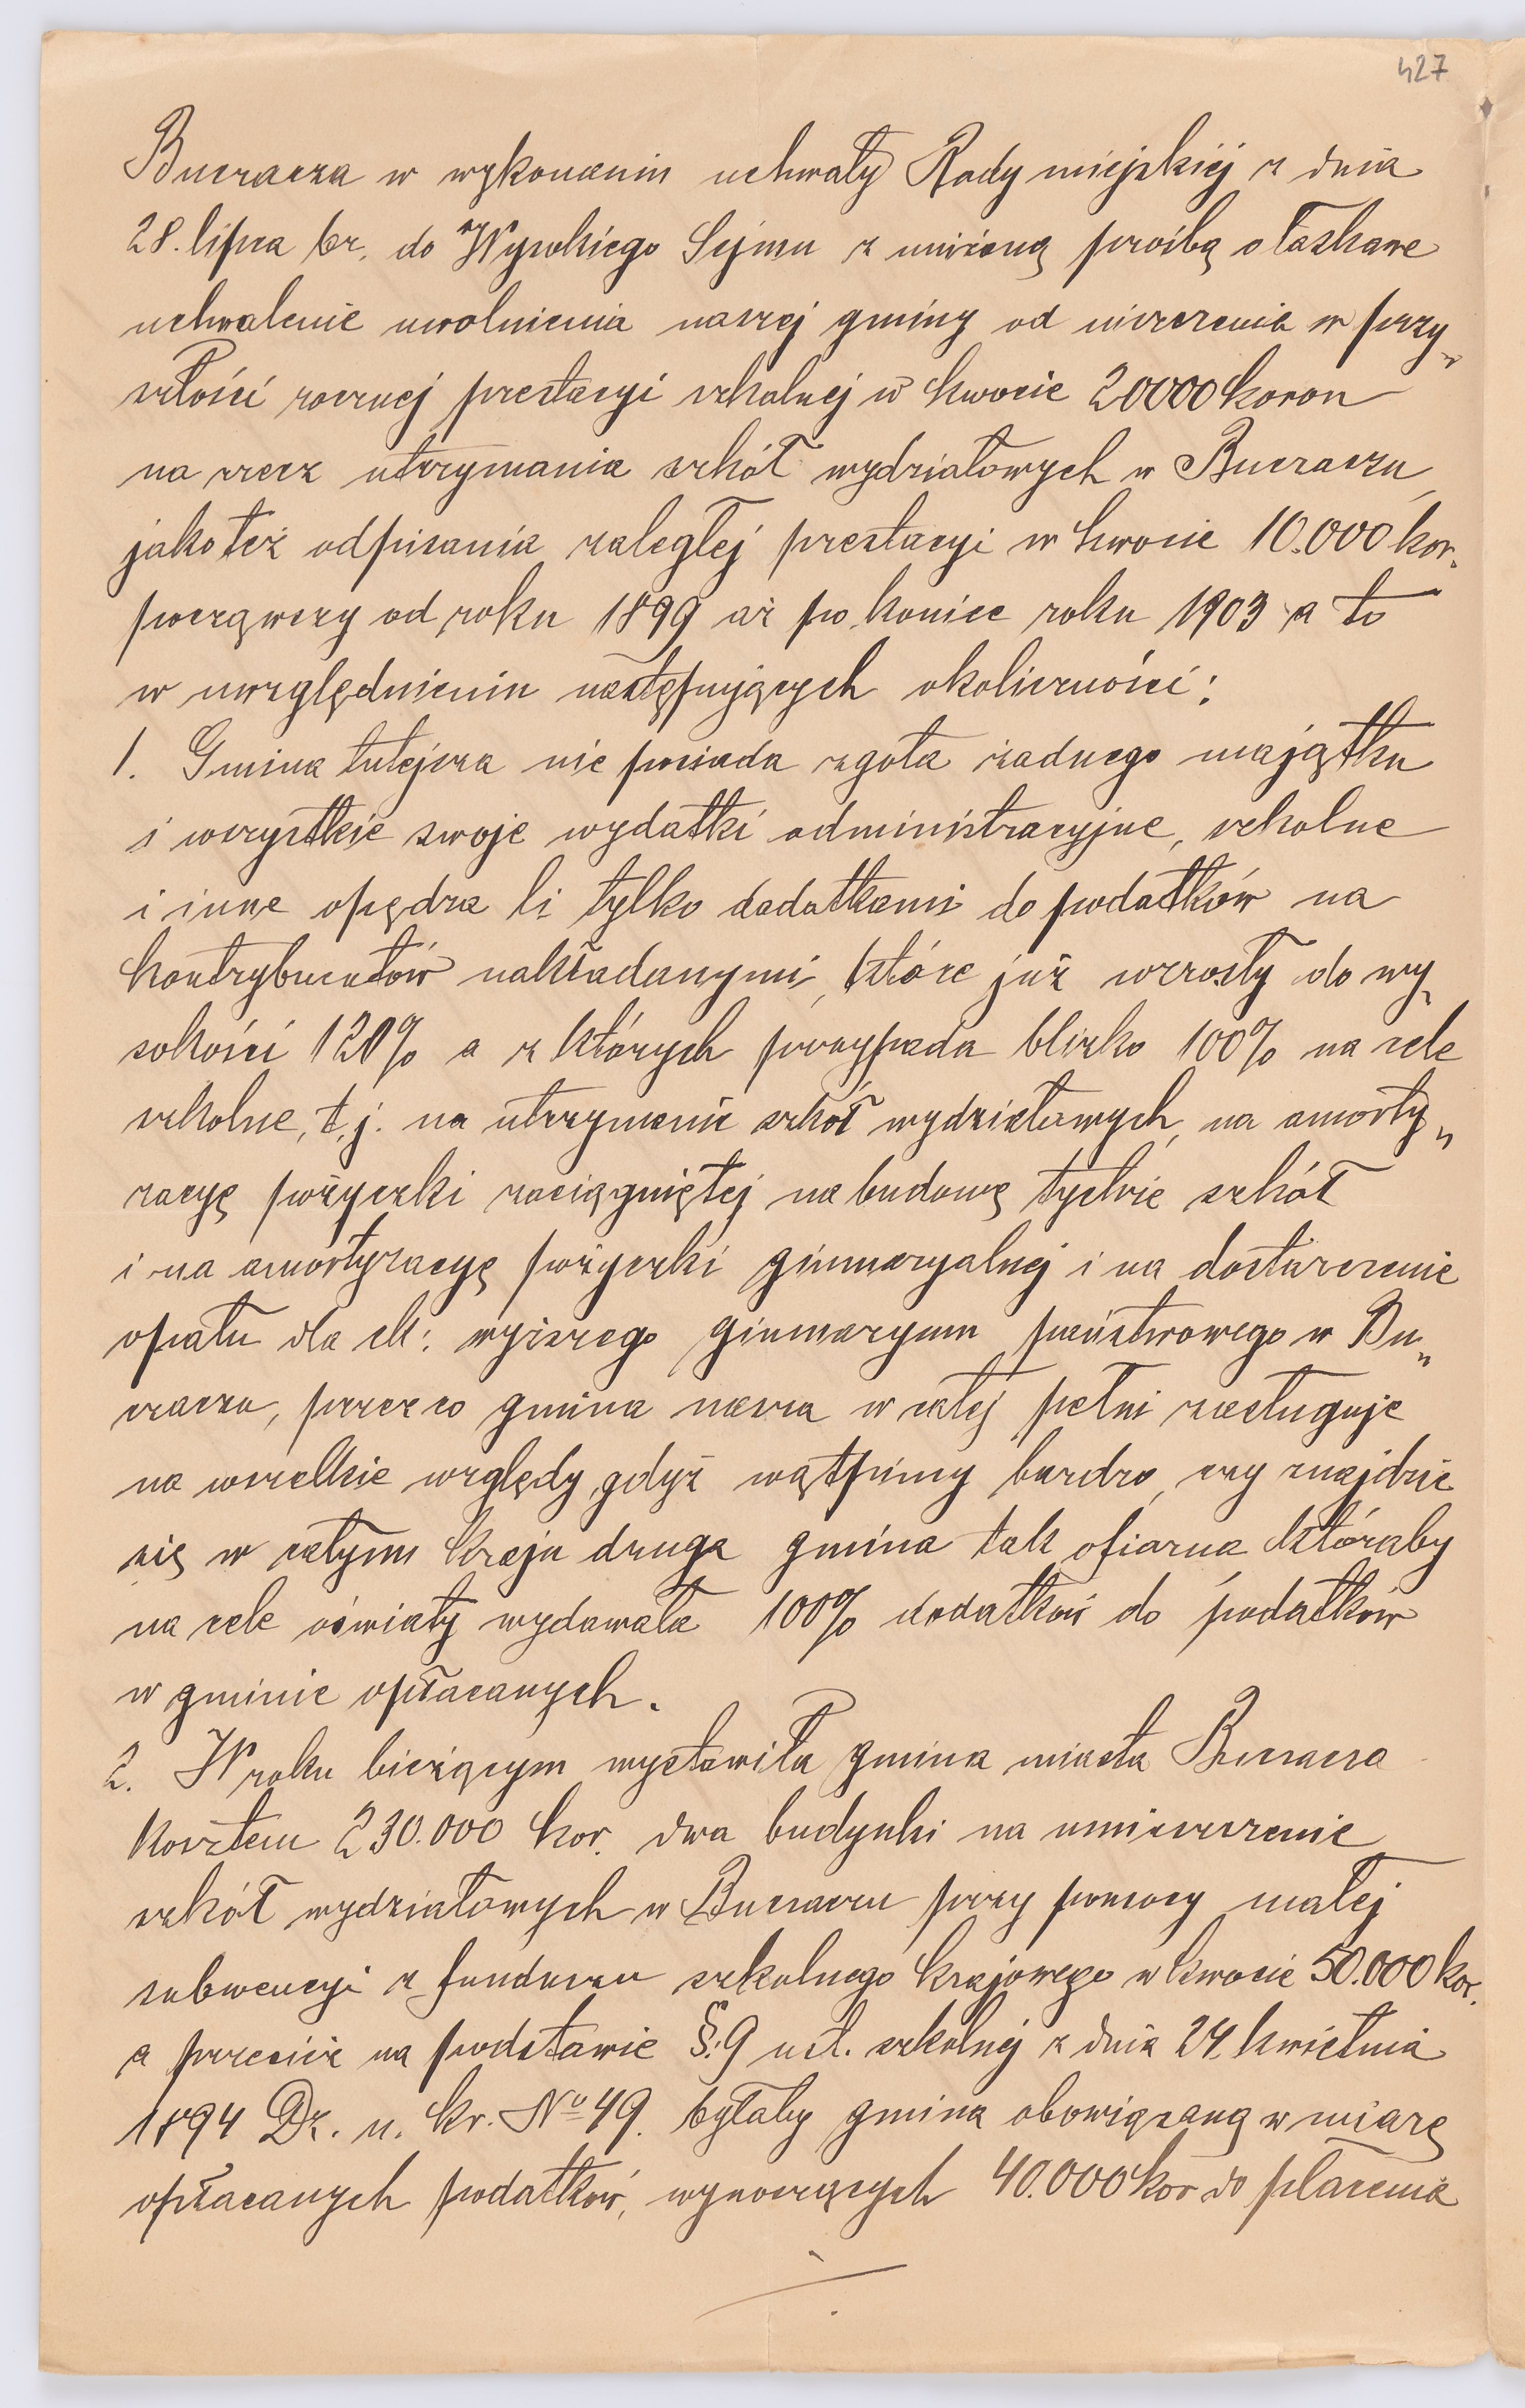 427
Buczacza w wykonaniu uchwały Rady miejskiej z dnia
28. lipca br. do Wysokiego Sejmu z uniżoną prośbą o łaskawe
uchwalenie uwolnienia naszej gminy od uiszczenia w przy„
szłości rocznej prestacyi szkolnej w kwocie 20000 koron
na rzecz utrzymania szkół wydziałowych w Buczaczu,
jakoteż odpisania zaległej prestacyi w kwocie 10.000 kor.
począwszy od roku 1899 aż po koniec roku 1903 a to
w uwzględnieniu następujących okoliczności:
1. Gmina tutejsza nie posiada zgoła żadnego majątku
i wszystkie swoje wydatki administracyjne, szkolne
i inne opędza li tylko dodatkami do podatków na
kontrybuentów nakładanymi, które już wzrosły do wy„
sokości 120% a z których przypada blizko 100% na cele
szkolne, t. j. na utrzymanie szkół wydziałowych, na amorty„
zacyę pożyczki zaciągniętej na budowę tychże szkół
i na amortyzacyę pożyczki gimnazyalnej i na dostarczenie
opału dla ck: wyższego gimnazyum państwowego w Bu„
czaczu, przez co gmina nasza w całej pełni zasługuje
na wszelkie względy, gdyż wątpimy bardzo, czy znajdzie
się w całym kraju druga gmina tak ofiarna któraby
na cele oświaty wydawała 100% dodatków do podatków
w gminie opłacanych.
2. W roku bieżącym wystawiła gmina miasta Buczacza
kosztem 230.000 kor. dwa budynki na umieszczenie
szkół wydziałowych w Buczaczu przy pomocy małej
subwencyi z funduszu szkolnego krajowego w kwocie 50.000 kor.
a przecież na podstawie §: 9 ust. szkolnej z dnia 24 kwietnia
1894 Dz. u. kr. No 49. byłaby gmina obowiązaną w miarę
opłacanych podatków, wynoszących 40.000 kor do płacenia